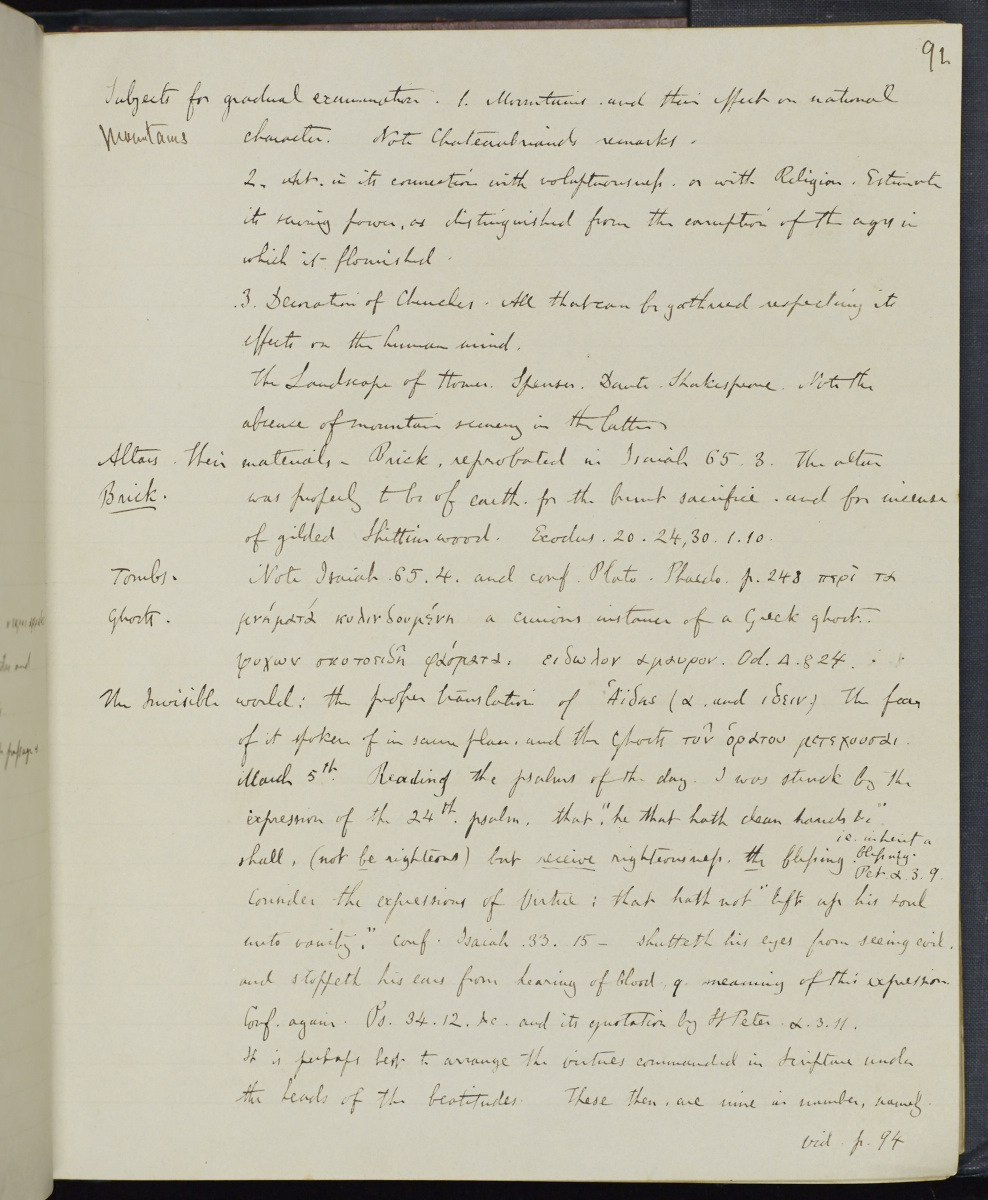 92
Subjects for gradual examination. 1. Mountains and their effect on national
Mountains character. Note Chateaubriands remarks.
2. Art. in its connection with voluptuousness. or with Religion. Estimate
its saving power, as distinguished from the corruption of the ages in
which it flourished.
3. Decoration of Churches. All that can be gathered respecting its
effects on the human mind.
The Landscape of Homer. Spenser. Dante. Shakespeare. Note the
absence of mountain scenery in the latter
Altars. their materials - Brick, reprobated in Isaiah 65. 3. The altar
Brick. was properly to be of earth. for the burnt sacrifice. and for incense
of gilded Shittim wood. Exodus. 20. 24, 30. 1. 10.
Tombs. Note Isaiah. 65. 4. and conf. Plato. Phaedo. p. 248 περι τα
Ghosts. μνήματά κυλινδουμένη a curious instance of a Greek ghost.
ψυχων σκιοειδῆ φάσματα. ειδωλον αμαυρον. Od. Δ. 824.
The Invisible world: the proper translation of Ἀΐδας (α. and ιδειν.) The fear
of it spoken of in same place. and the Ghosts τοῦ ὁράτου μετεχουσαι.
March 5th. Reading the psalms of the day. I was struck by the
expression of the 24th. psalm. that, "he that hath clean hands &c"
shall, (not be righteous) but receive righteousness. the blessing. i.e. inherit a
blessing.
Pet. α. 3. 9.
Consider the expressions of Virtue; that hath not "lift up his soul
unto vanity;" conf. Isaiah. 33. 15 - shutteth his eyes from seeing evil.
and stoppeth his ears from hearing of blood. q. meaning of this expression.
Conf. again. Ps. 34. 12. &c. and its quotation by St Peter α. 3. 11.
It is perhaps best to arrange the virtues commanded in Scripture under
the heads of the beatitudes. These then, are nine in number, namely.
vid p. 94